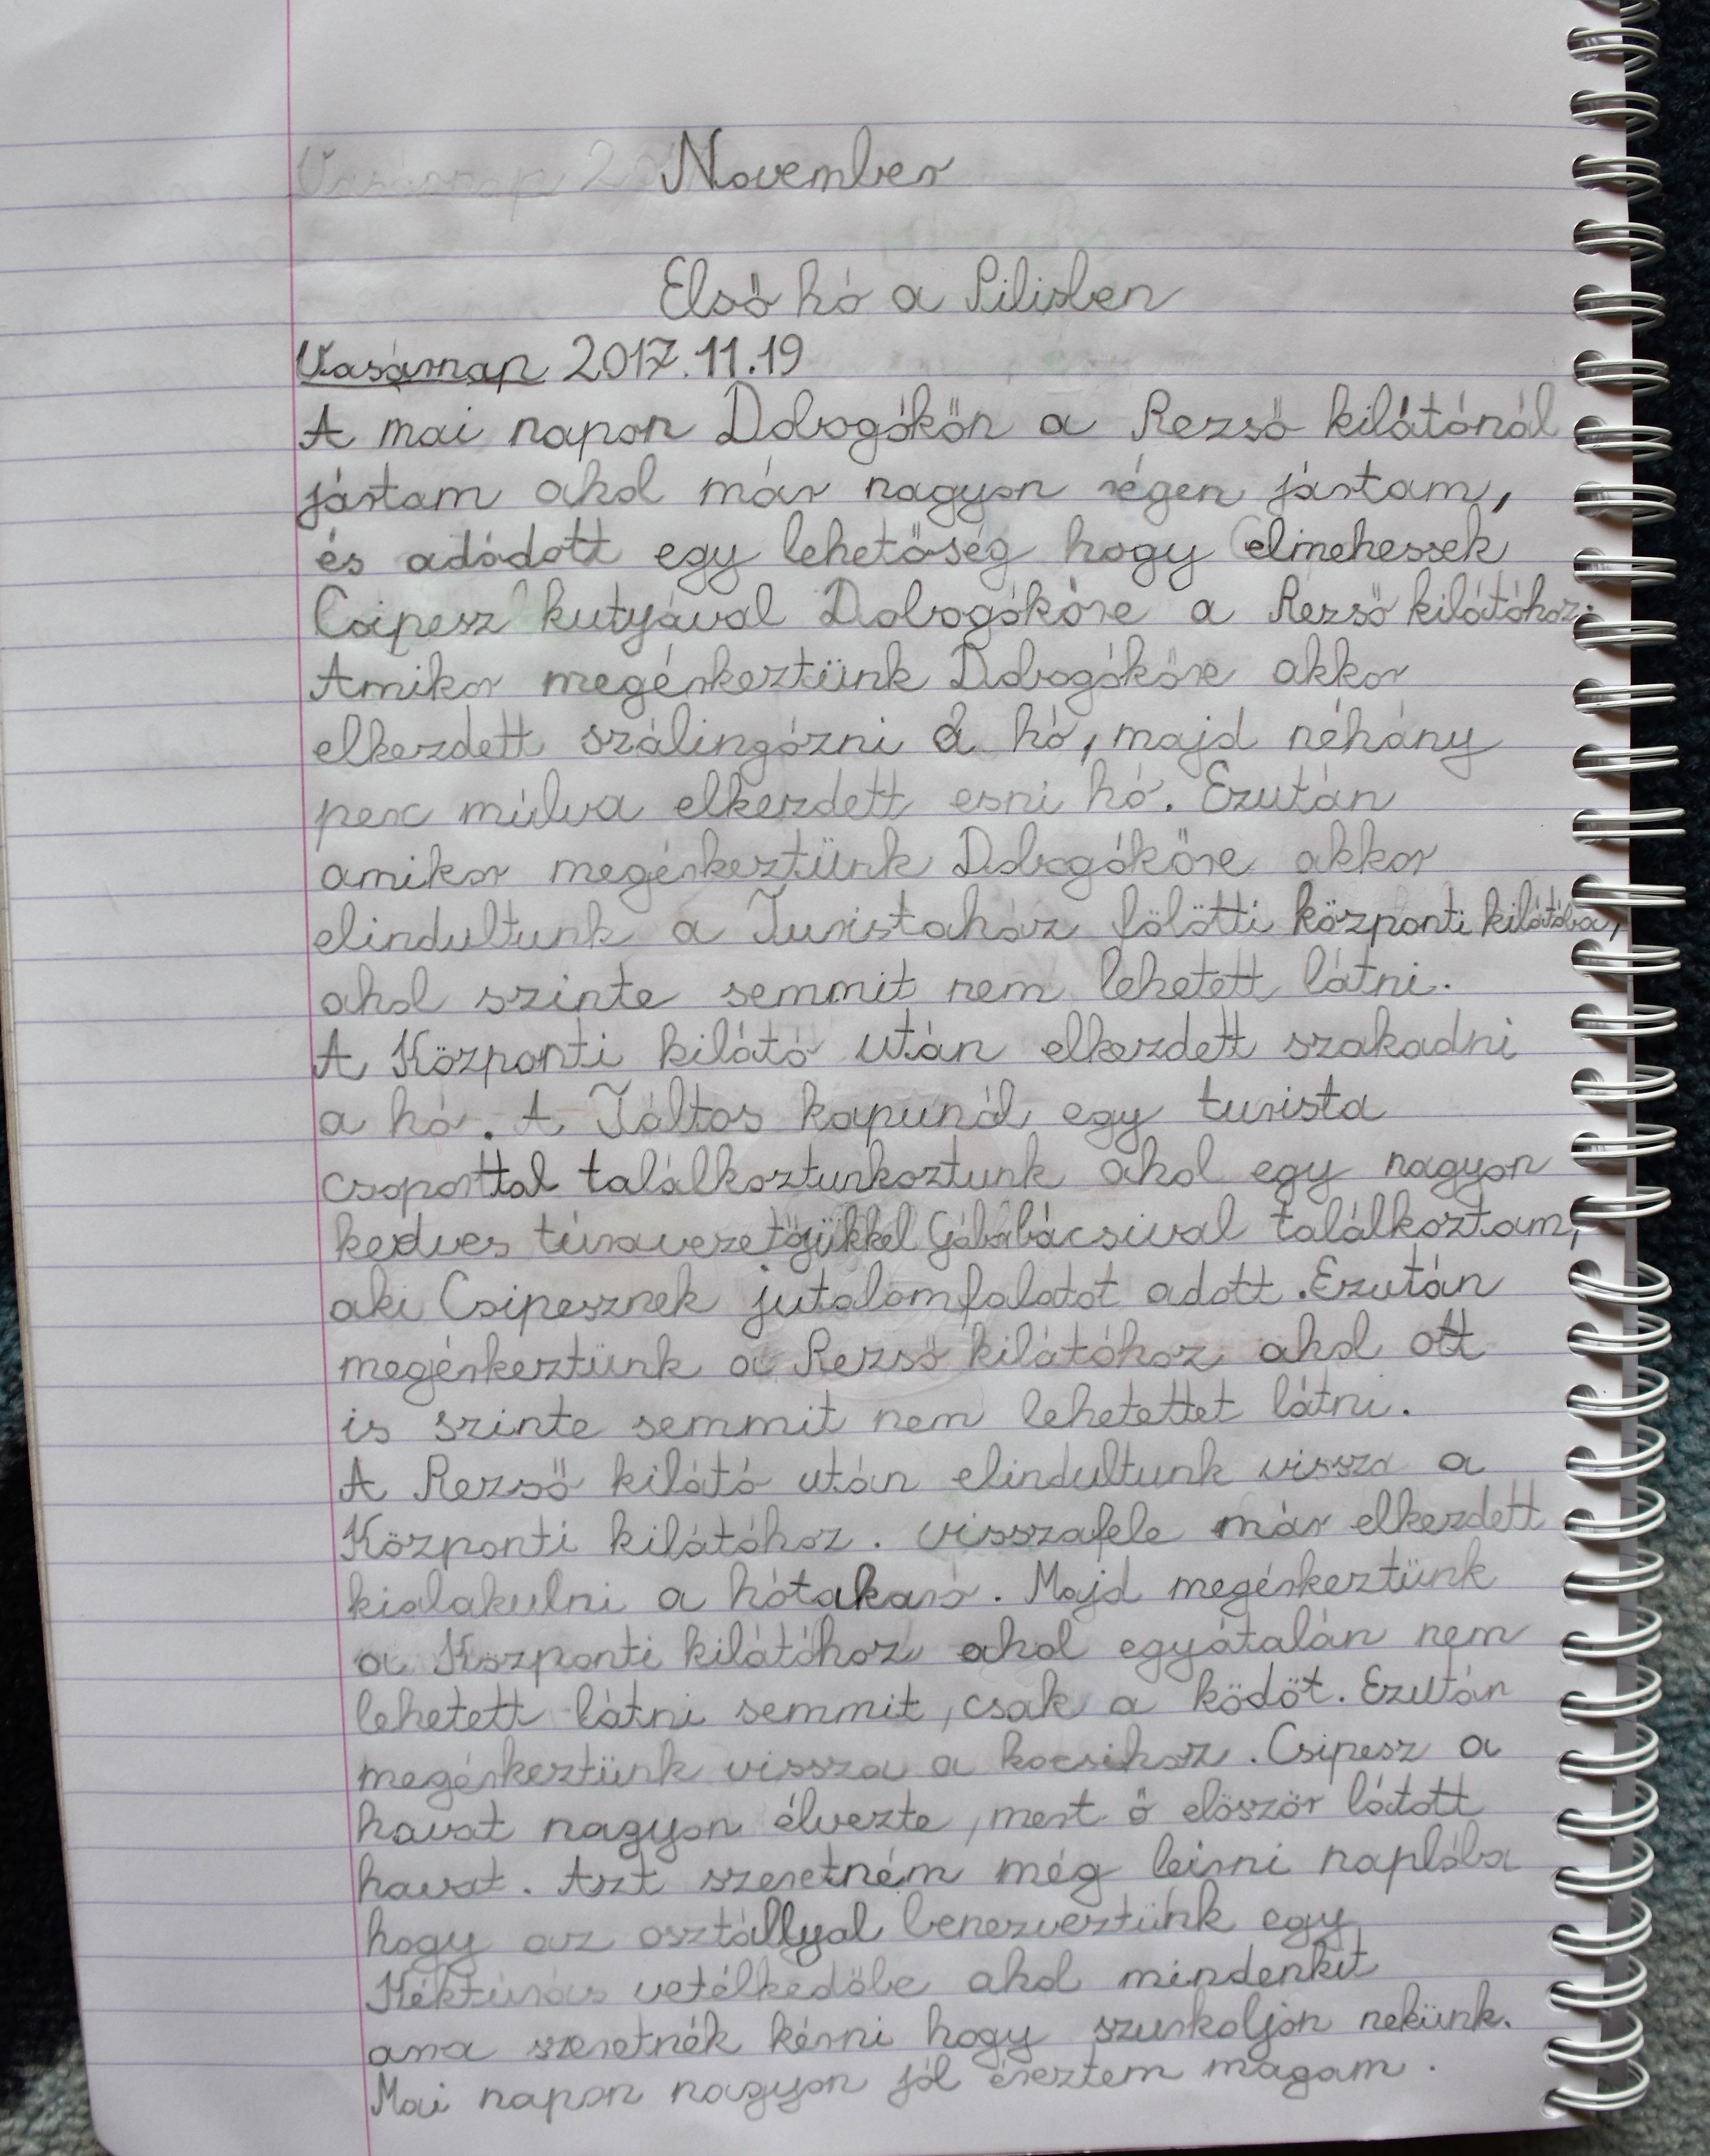 November
Első hó a Pilisben
Vasárnap 2017.11.19
A mai napon Dobogókőn a Rezső kilátónál
jártam ahol már nagyon régen jártam,
és adódott egy lehetőség hogy elmehessek
Csipesz kutyával Dobogókőre a Rezső kilátóhoz.
Amikor megérkeztünk Dobogókőre akkor
elkezdett szálingózni a hó, majd néhány
perc múlva elkezdett esni hó. Ezután
amikor megérkeztünk Dobogókőre akkor
elindultunk a Turistaház fölötti központi kilátóba,
ahol szinte semmit nem lehetett látni.
A Központi kilátó után elkezdett szakadni
a hó. A Táltos kapunál egy turista
csoporttal találkoztunkoztunk ahol egy nagyon
kedves túravezetőjükkel Gáborbácsival találkoztam,
aki Csipesznek jutalomfalatot adott. Ezután
megérkeztünk a Rezső kilátóhoz ahol ott
is szinte semmit nem lehetettet látni.
A Rezső kilátó után elindultunk vissza a
Központi kilátóhoz. visszafele már elkezdett
kialakulni a hótakaró. Majd megérkeztünk
a Központi kilátóhoz ahol egyátalán nem
lehetett látni semmit, csak a ködöt. Ezután
megérkeztünk vissza a kocsihoz. Csipesz a
havat nagyon élvezte, mert ő elöször látott
havat. Azt szeretném még leirni naplóba
hogy az osztállyal benezveztünk egy
Kéktúrás vetélkedőbe ahol mindenkit
arra szeretnék kérni hogy szurkoljon nekünk.
Mai napon nagyon jól éreztem magam.